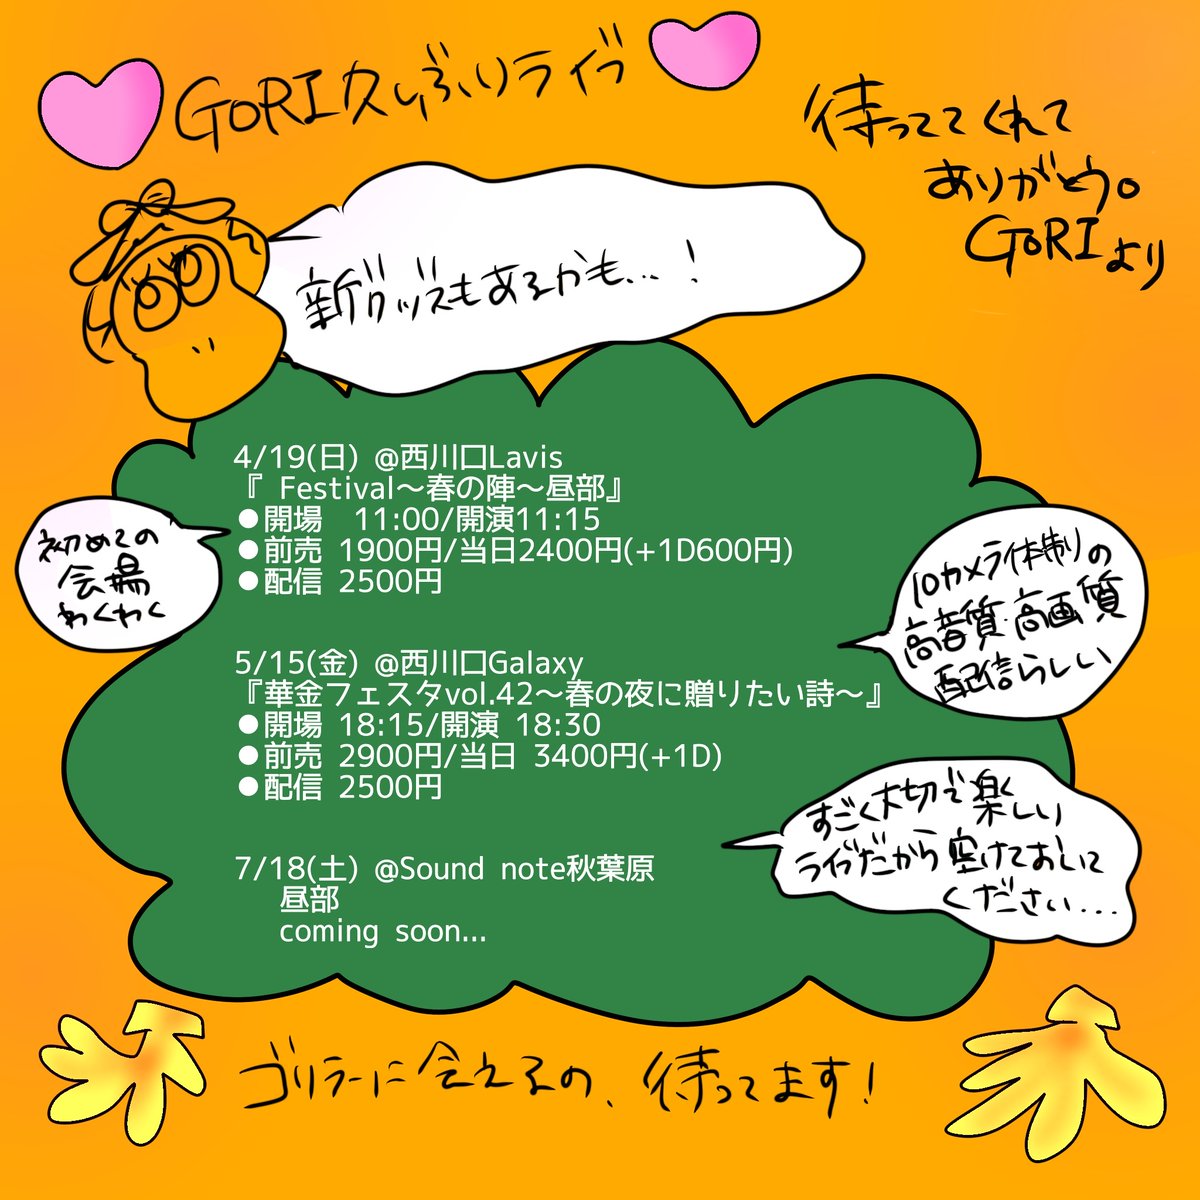 GORI久しぶりライブ
待っててくれて
ありがとう。
GORIより
新グッズもあるかも...!
4/19(日) @西川口Lavis
『 Festival〜春の陣〜昼部』
●開場 11:00/開演11:15
●前売 1900円/当日2400円(+1D600円)
●配信 2500円
初めての
会場
わくわく
10カメラ体制の
高音質・高画質
配信らしい
5/15(金) @西川口Galaxy
『華金フェスタvol.42〜春の夜に贈りたい詩〜』
●開場 18:15/開演 18:30
●前売 2900円/当日 3400円(+1D)
●配信 2500円
すごく大切で楽しい
ライブだから空けておいて
ください...
7/18(土) @Sound note秋葉原
昼部
coming soon...
ゴリラーに会えるの、待ってます!